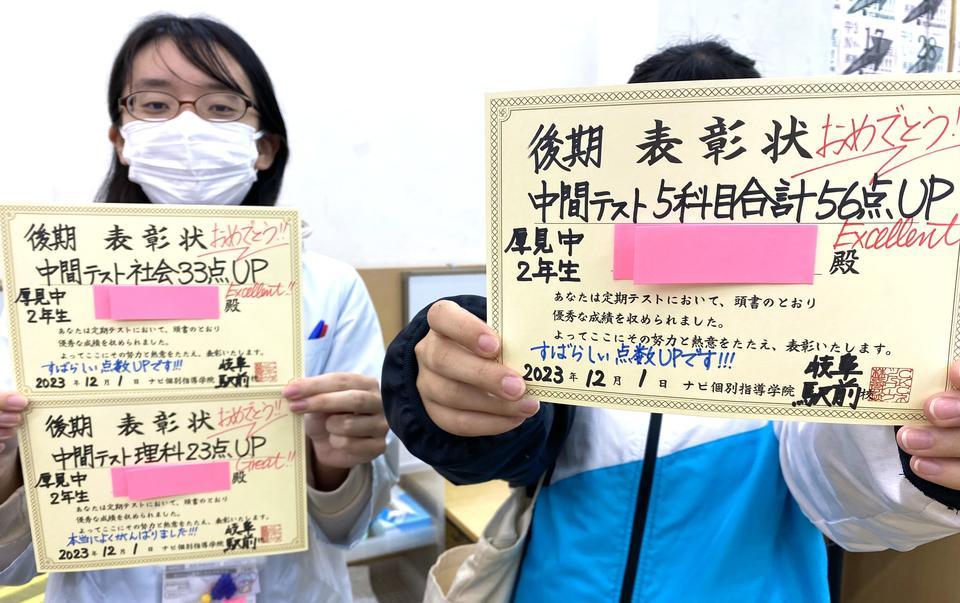 後期 表彰状 おめでとう!!
中間テスト社会33点UP
Excellent!!
厚見中
2年生
殿
あなたは定期テストにおいて、頭書のとおり
優秀な成績を収められました。
よってここにその努力と熱意をたたえ、表彰いたします。
すばらしい点数UPです!!!
2023年12月1日 ナビ個別指導学院 岐阜駅前校
後期 表彰状 おめでとう!!
中間テスト理科23点UP
Great!!
厚見中
2年生
殿
あなたは定期テストにおいて、頭書のとおり
優秀な成績を収められました。
よってここにその努力と熱意をたたえ、表彰いたします。
本当によくがんばりました!!!
2023年12月1日 ナビ個別指導学院 岐阜駅前校
後期 表彰状 おめでとう!!
中間テスト5科目合計56点UP
Excellent
厚見中
2年生
殿
あなたは定期テストにおいて、頭書のとおり
優秀な成績を収められました。
よってここにその努力と熱意をたたえ、表彰いたします。
すばらしい点数UPです!!!
2023年12月1日 ナビ個別指導学院 岐阜駅前校
17
28